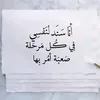 أنا سَند لنَفسِي
في كُل مَرحَلة
صَعبَة أمُر بهَا